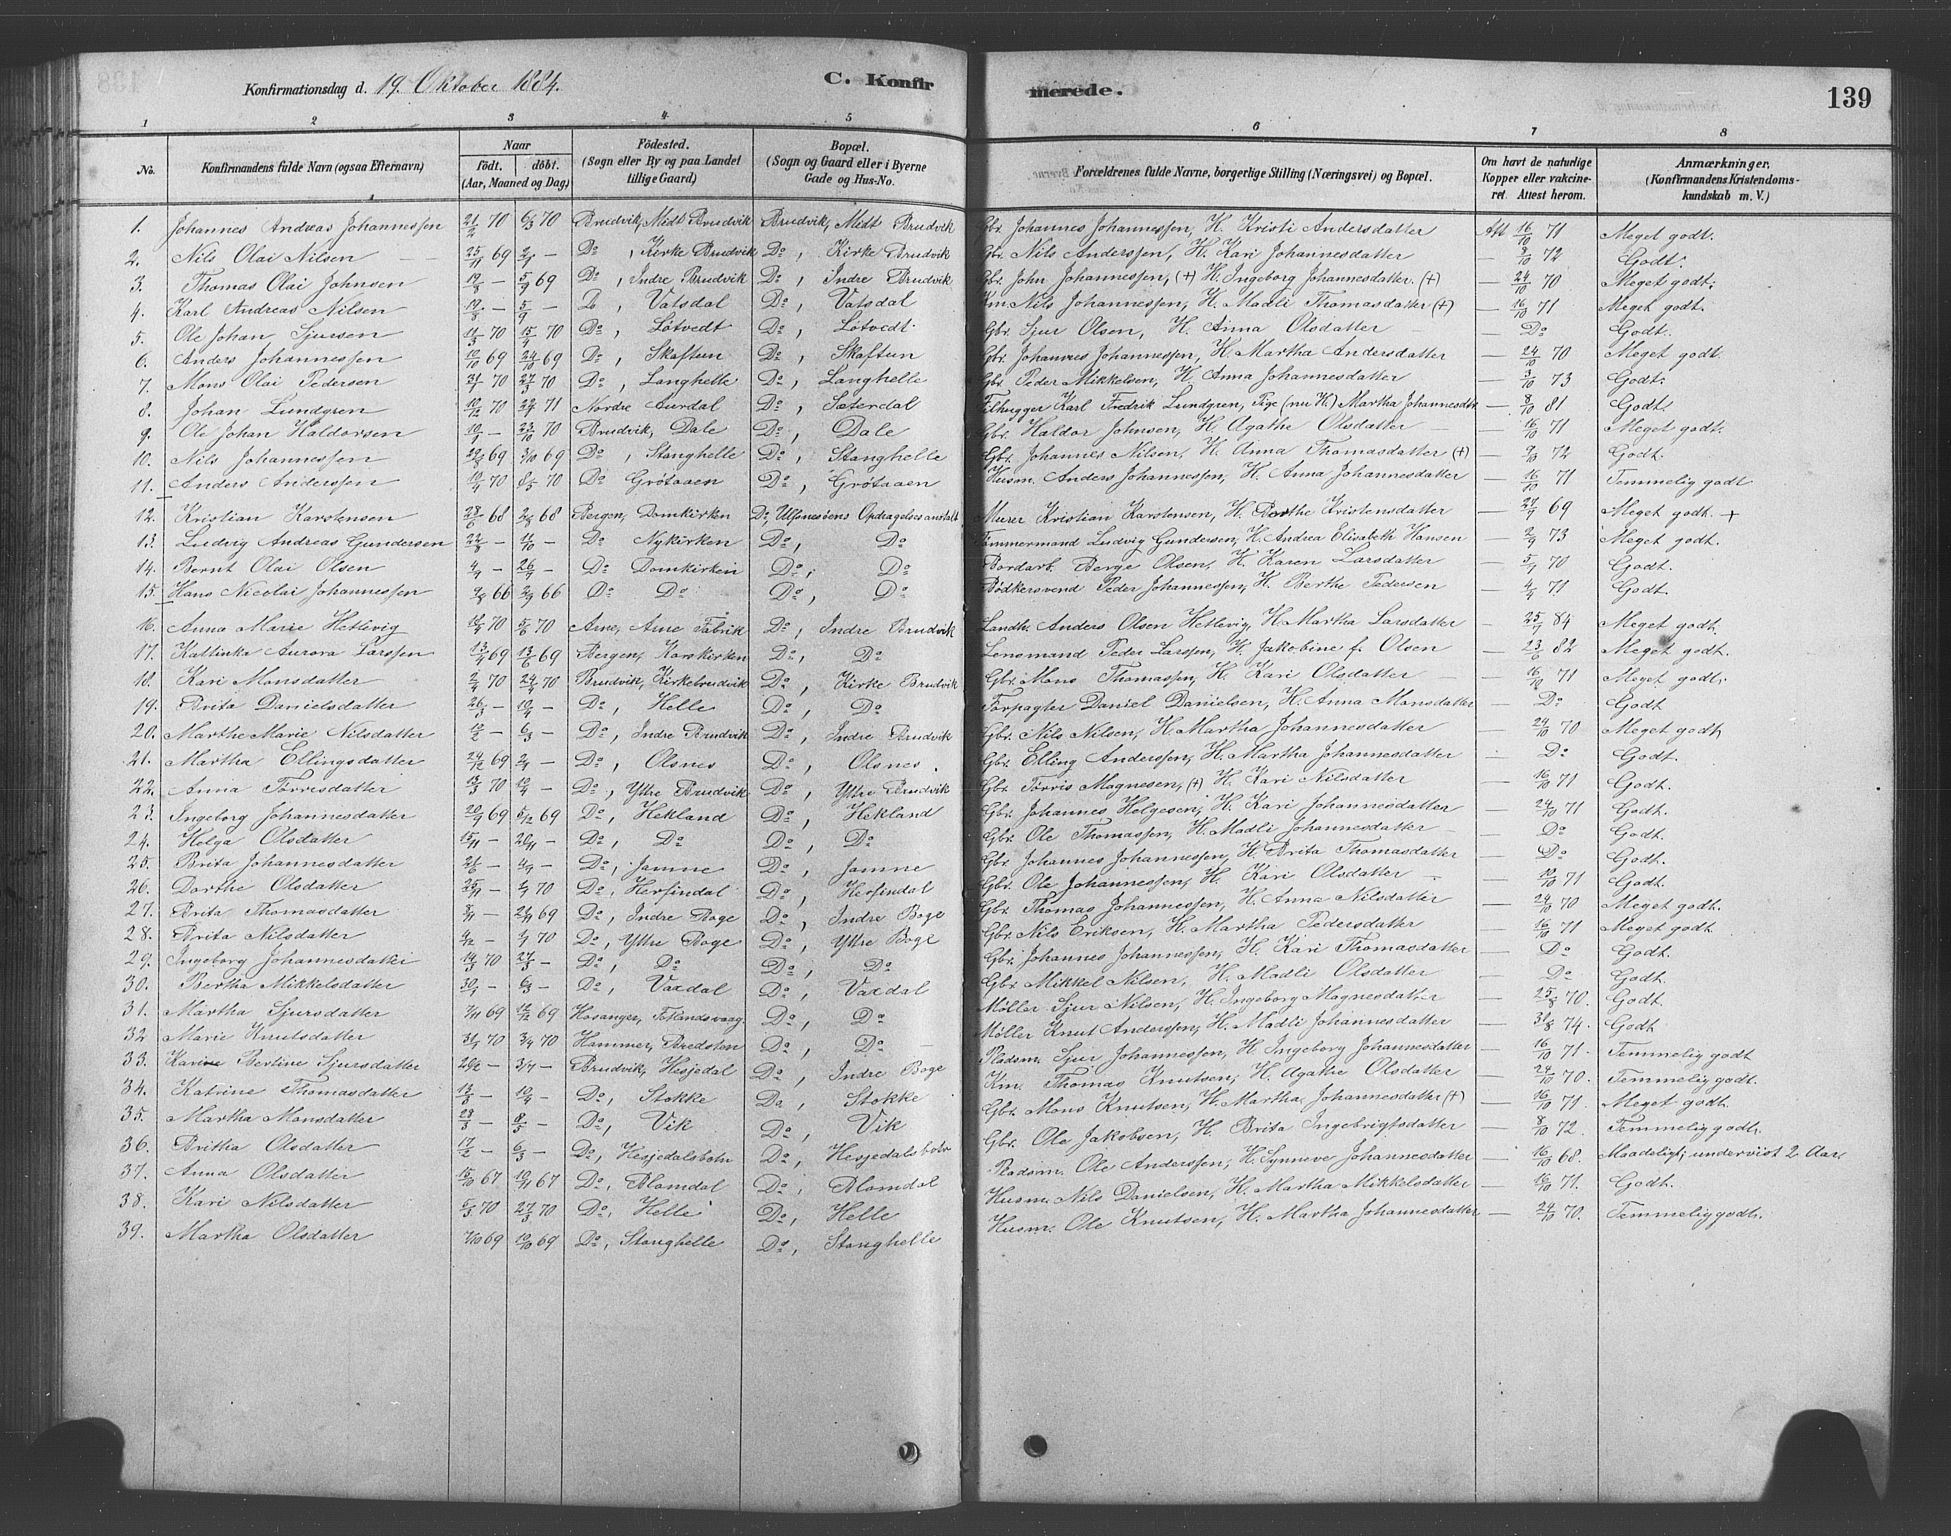 Konfirmationsdag d. 19. Oktober 1884. C. Konfir merede. 139
1 2 3 4 5 6 7 8
No. Konfirmandens fulde Navn (ogsaa Efternavn) Naar födt. döbt. (Aar, Maaned og Dag) Födested. (Sogn eller By og paa Landet tillige Gaard) Bopæl. (Sogn og Gaard eller i Byerne Gade og Hus-No. Forældrenes fulde Navne, borgerlige Stilling (Næringsvei) og Bopæl. Om havt de naturlige Kopper eller vakcineret. Attest herom. Anmærkninger. (Konfirmandens Kristendomskundskab m. V.)
1. Johannes Andreas Johannessen 21/2 70 6/3 70 Brudvik, Midt Brudvik Brudvik, Midt Brudvik Gbr. Johannes Johannessen, H. Kristi Andersdatter Att 16/10 71 Meget godt.
2. Nils Olai Nilsen 25/11 69 Do, Kirke Brudvik Do, Kirke Brudvik Gbr. Nils Anderssen, H. Kari Johannesdatter 72 Godt.
3. Thomas Olai Johnsen 19/8 — 5/9 69 Do, Indre Brudvik Do, Indre Brudvik Gbr. John Johannessen, (+) H. Ingeborg Johannesdatter. (+) — 24/10 70 Meget godt.
4. Karl Andreas Nilsen — 5/9 — Do, Vatsdal Do, Vatsdal Km. Nils Johannessen, H. Madli Thomasdatter (+) — 16/10 71 Meget godt.
5. Ole Johan Sjursen 70 70 Do, Løtvedt Do, Løtvedt Gbr. Sjur Olsen, H. Anna Olsdatter — Do Godt.
6. Anders Johannessen 69 24/10 69 Do, Skaftun Do, Skaftun Gbr. Johannes Johannessen, H. Martha Andersdatter — 24/10 70 Meget godt
7. Mons Olai Pedersen 70 27/3 70 Do, Langhelle Do, Langhelle Gbr. Peder Mikkelsen, H. Anna Johannesdatter — 73 Godt.
8. Johan Lundgren 10/12 70 71 Nordre Aurdal Do, Sæterdal Filhugger Karl Fredrik Lundgren, Pige (nu H.) Martha Johannesdtr — 8/10 81 Godt.
9. Ole Johan Haldorsen — 23/10 70 Brudvik, Dale Do, Dale Gbr. Haldor Johnsen, H. Agathe Olsdatter — 16/10 71 Meget godt.
10. Nils Johannessen 69 3/10 69 Do, Stanghelle Do, Stanghelle Gbr. Johannes Nilsen, H. Anna Thomasdatter (+) — 72 Godt.
11. Anders Anderssen 70 8/5 70 Do Grötaaen Do, Grötaaen Husm. Anders Johannessen, H. Anna Johannesdatter — 16/10 71 Temmelig godt
12. Kristian Karstensen 28/6 68 68 Bergen, Domkirken Do, Ulfsnesøens Opdragelsesanstalt Murer Kristian Karstensen, H. Berthe Kristensdatter — 69 Meget godt. +
13. Ludvig Andreas Gundersen 22/8 — 11/10 — Do Nykirken Do, Do Tømmermand Ludvig Gundersen, H. Andrea Elisabeth Hansen — 73 Meget godt.
14. Bernt Olai Olsen — — Do Domkirken Do, Do Bordarb. Berge Olsen, H. Karen Larsdatter — 70 Godt.
15. Hans Nicolai Johannessen 66 66 Do Do Do, Do Bödkersvend Peder Johannessen, H. Berthe Pedersen — 71 Godt.
16. Anna Marie Hetlevig 70 5/6 70 Arne, Arne Fabrik Do, Indre Brudvik Landh. Anders Olsen Hetlevig, H. Martha Larsdatter — 84 Meget godt.
17. Kattinka Aurora Larssen 13/4 69 13/6 69 Bergen, Korskirken Do, Do Lensmand Peder Larssen, H. Jakobine f. Olsen — 23/6 82 Meget godt.
18. Kari Monsdatter 70 24/4 70 Brudvik, Kirkebrudvik Do, Kirke Brudvik Gbr. Mons Thomassen, H. Kari Olsdatter — 16/10 71 Meget godt.
19. Brita Danielsdatter 26/3 — 10/4 — Do, Helle Do, Do Forpagter Daniel Danielsen, H. Anna Monsdatter — Do Godt
20. Marthe Marie Nilsdatter — 6/3 — Do, Indre Brudvik Do, Indre Brudvik Gbr. Nils Nilsen, H. Martha Johannesdatter — 24/10 70 Meget godt
21. Martha Ellingsdatter 24/12 69 — Do, Olsnes Do, Olsnes. Gbr. Elling Anderssen, H. Martha Johannesdatter — Do Godt.
22. Anna Torrisdatter 13/3 70 — Do, Yttre Brudvik Do, Yttre Brudvik Gbr. Torris Magnesen, (+) H. Kari Nilsdatter — 16/10 71 Godt.
23. Ingeborg Johannesdatter 69 5/12 69 Do, Hekland Do, Hekland Gbr. Johannes Helgesen, H. Kari Johannesdatter — 24/10 71 Godt.
24. Helga Olsdatter 15/11 — 20/11 — Do, Do Do, Do Gbr. Ole Thomassen, H. Madli Johannesdatter — Do Godt.
25. Brita Johannesdatter — — Do, Jamne Do, Jamne Gbr. Johannes Johannessen, H. Brita Thomasdatter — Do Godt.
26. Dorthe Olsdatter 25/11 — 70 Do, Herfindal Do, Herfindal Gbr. Ole Johannessen, H. Kari Olsdatter — 71 Godt.
27. Brita Thomasdatter 8/11 — 21/11 69 Do, Indre Boge Do, Indre Boge Gbr. Thomas Johannessen, H. Anna Nilsdatter — 24/10 70 Meget godt.
28. Brita Nilsdatter — 70 Do, Yttre Boge Do, Yttre Boge Gbr. Nils Eriksen, H. Martha Pedersdatter — 16/10 71 Meget godt
29. Ingeborg Johannesdatter 14/3 70 27/3 — Do, Do Do, Do Gbr. Johannes Johannessen, H. Kari Thomasdatter — Do Godt.
30. Bertha Mikkelsdatter 30/1 — 6/3 — Do, Vaxdal Do, Vaxdal Gbr. Mikkel Nilsen, H. Madli Olsdatter — Do Godt.
31. Martha Sjursdatter 69 69 Hosanger, Fotlandsvaag. Do, Do Møller Sjur Nilsen, H. Ingeborg Magnesdatter — 25/8 70. Godt.
32 Marie Knutsdatter 70 3/4 70 Hammer, Bredsten Do, Do Møller Knut Anderssen, H. Madli Johannesdatter — 31/8 74. Godt
33. Karine Bertine Sjursdatter 20/2 — — Brudvik, Hesjedal Do, Indre Boge Pladsm. Sjur Johannessen, H. Ingeborg Johannesdatter — 16/10 71. Temmelig godt
34. Katrine Thomasdatter — — Do, Stokke Do, Stokke Km. Thomas Knutsen, H. Agathe Olsdatter — 24/10 70. Temmelig godt.
35. Martha Monsdatter — 8/5 — Do, Vik Do, Vik Gbr. Mons Knutsen, H. Martha Johannesdatter (+) — 16/10 71. Meget godt.
36. Britha Olsdatter 17/2 — 6/3 — Do, Hesjedalsbotn Do, Hesjedalsbotn Gbr. Ole Jakobsen, H. Brita Ingebrigtsdatter — 8/10 72. Temmelig godt.
37. Anna Olsdatter 15/10 67 67 Do, Blomdal Do, Blomdal Pladsm. Ole Anderssen, H. Synneve Johannesdatter — 16/10 68. Maadeligt, undervist 2 Aar
38. Kari Nilsdatter 5/3 70 27/3 70 Do, Helle Do, Helle Husm. Nils Danielsen, H. Martha Mikkelsdatter — 16/10 71. Godt.
39. Martha Olsdatter 69 10/10 69 Do, Stanghelle Do, Stanghelle Husm. Ole Knutsen, H. Martha Johannesdatter — 24/10 70. Temmelig godt.